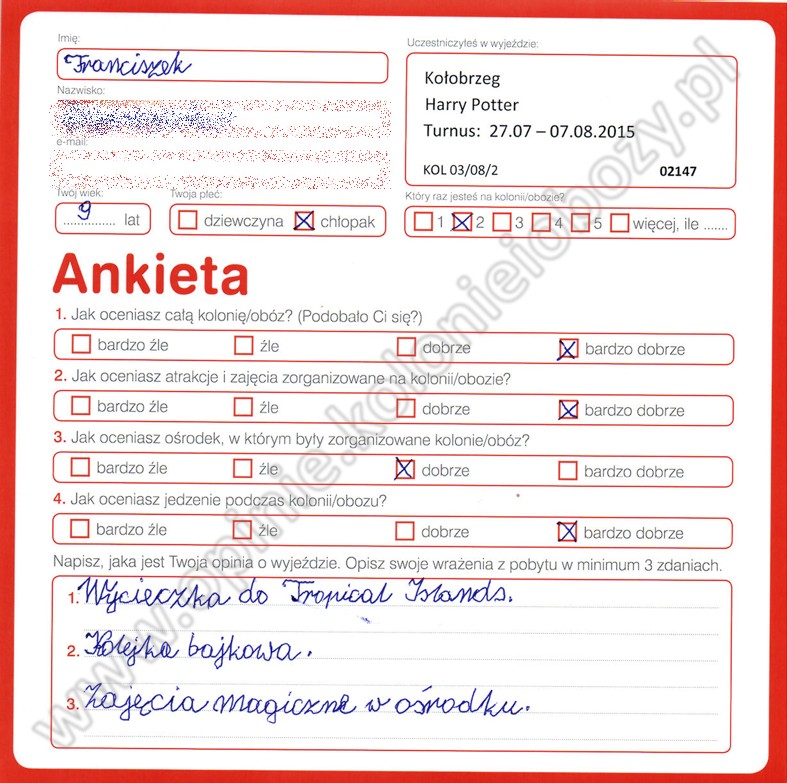 Imię:
Franciszek
Nazwisko:
e-mail:
Twój wiek:
9 lat
Twoja płeć:
dziewczyna chłopak
Uczestniczyłeś w wyjeździe:
Kołobrzeg
Harry Potter
Turnus: 27.07 – 07.08.2015
KOL 03/08/2 02147
Który raz jesteś na kolonii/obozie?
1 2 3 4 5 więcej, ile .......
Ankieta
1. Jak oceniasz całą kolonię/obóz? (Podobało Ci się?)
bardzo źle źle dobrze bardzo dobrze
2. Jak oceniasz atrakcje i zajęcia zorganizowane na kolonii/obozie?
bardzo źle źle dobrze bardzo dobrze
3. Jak oceniasz ośrodek, w którym były zorganizowane kolonie/obóz?
bardzo źle źle dobrze bardzo dobrze
4. Jak oceniasz jedzenie podczas kolonii/obozu?
bardzo źle źle dobrze bardzo dobrze
Napisz, jaka jest Twoja opinia o wyjeździe. Opisz swoje wrażenia z pobytu w minimum 3 zdaniach.
1. Wycieczka do Tropical Islands.
2. Kolejka bajkowa.
3. Zajęcia magiczne w ośrodku.
www.opinie.kolonieiobozy.pl